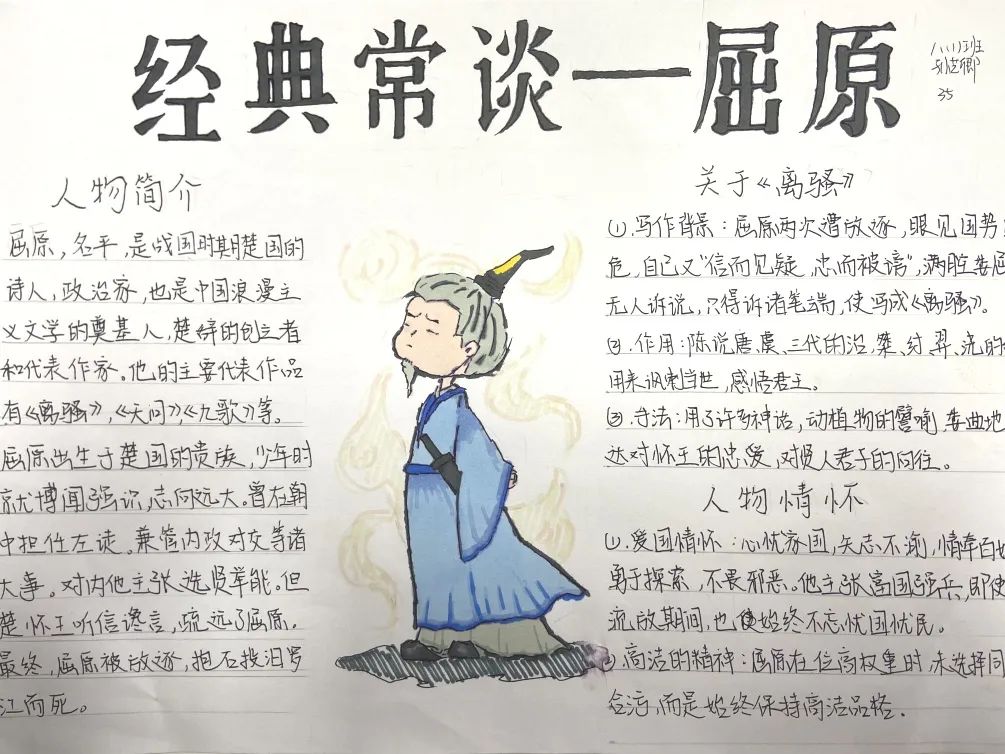 经典常谈—屈原
八(1)班
35
人物简介
屈原，名平，是战国时期楚国的
诗人，政治家，也是中国浪漫主
义文学的奠基人，楚辞的创立者
和代表作家。他的主要代表作品
有《离骚》，《天问》《九歌》等。
屈原出生于楚国的贵族，少年时
就博闻强识，志向远大。曾在朝
中担任左徒。兼管内政对交等诸
大事。对内他主张选贤举能。但
楚怀王听信谗言，疏远了屈原。
最终，屈原被放逐，抱石投汨罗
江而死。
关于《离骚》
①.写作背景：屈原两次遭放逐，眼见国势
危，自己又“信而见疑，忠而被谤”，满腔委屈
无人诉说，只得诉诸笔端，使写成《离骚》。
②.作用：陈说唐虞、三代的治，桀、纣、羿、浇的
用来讽刺当世，感悟君主。
③.手法：用了许多神话，动植物的譬喻，委曲地
达对怀王的忠爱，对贤人君子的向往。
人物情怀
①.爱国情怀：心忧家国，矢志不渝，情牵百姓
勇于探索，不畏邪恶。他主张富国强兵，即使
流放期间，也始终不忘忧国忧民。
②.高洁的精神：屈原在位高权重时，未选择同
合污，而是始终保持高洁品格。